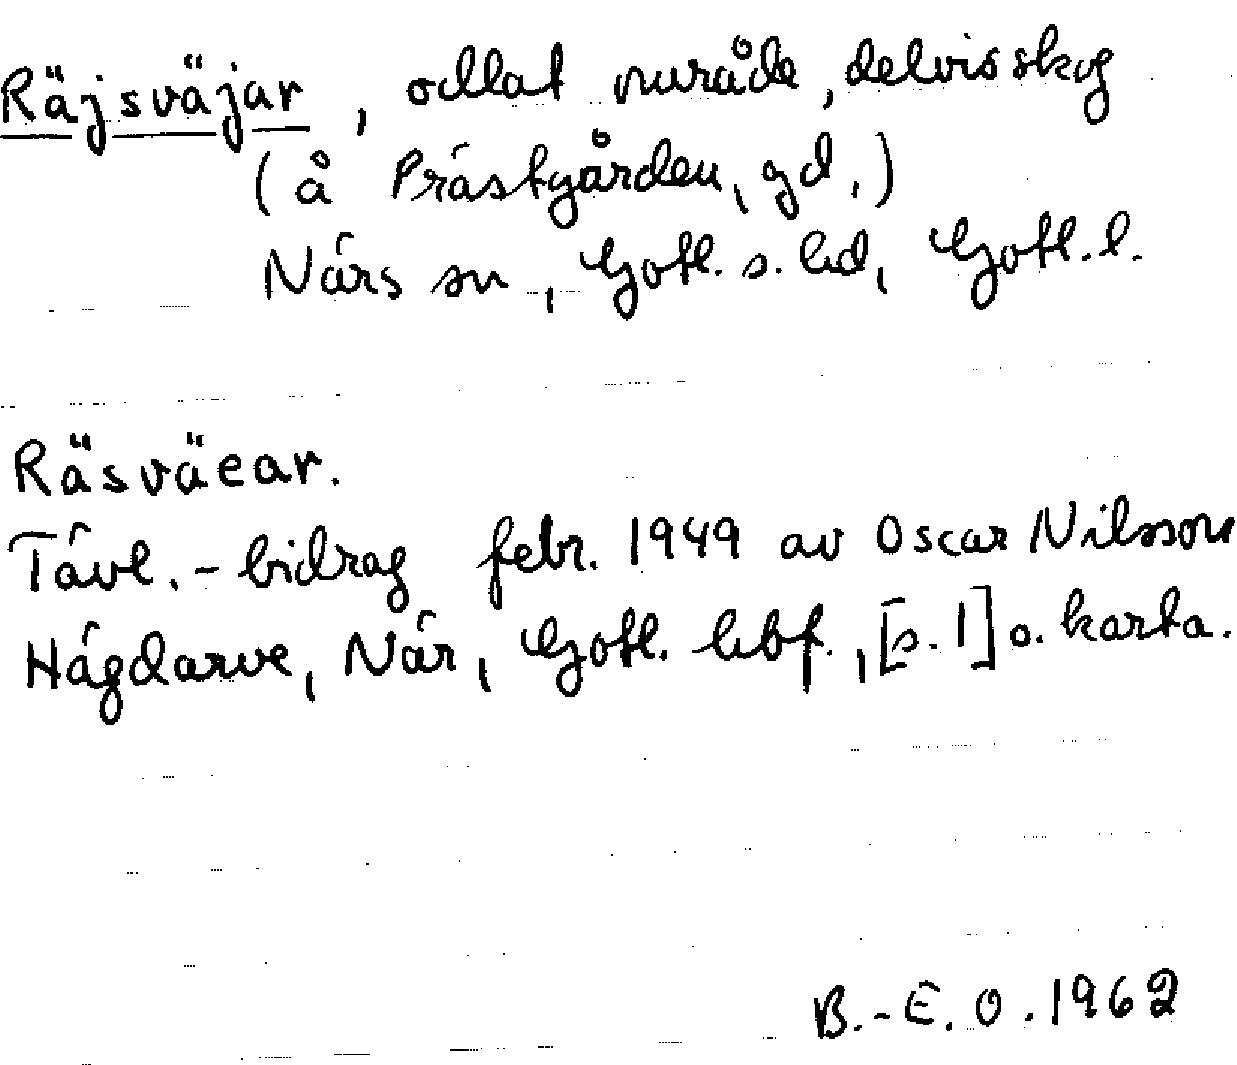 Räjsväjar, odlat område, delvis skog
(å Prästgården, gd,)
Närs sn, Gotl. s. hd, Gotl. l.
Räsväear.
Tävl.-bidrag febr. 1949 av Oscar Nilsson
Hägdarve, När, Gotl. hbf., [s. 1] o. karta.
B.-E. O. 1962